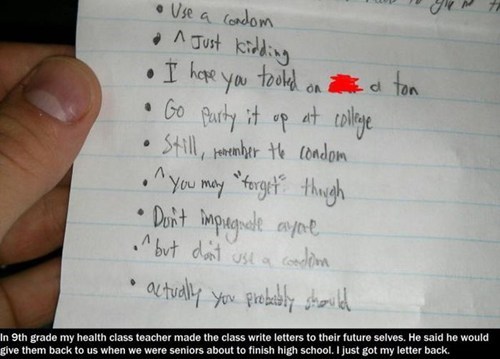 • Use a condom
• ^ Just kidding
• I hope you tooled on a ton
• Go party it up at college
• Still, remember the condom
• ^ you may "forget" though
• Don't impregnate anyone
• ^ but don't use a condom
• actually you probably should
In 9th grade my health class teacher made the class write letters to their future selves. He said he would
give them back to us when we were seniors about to finish high school. I just got my letter back.